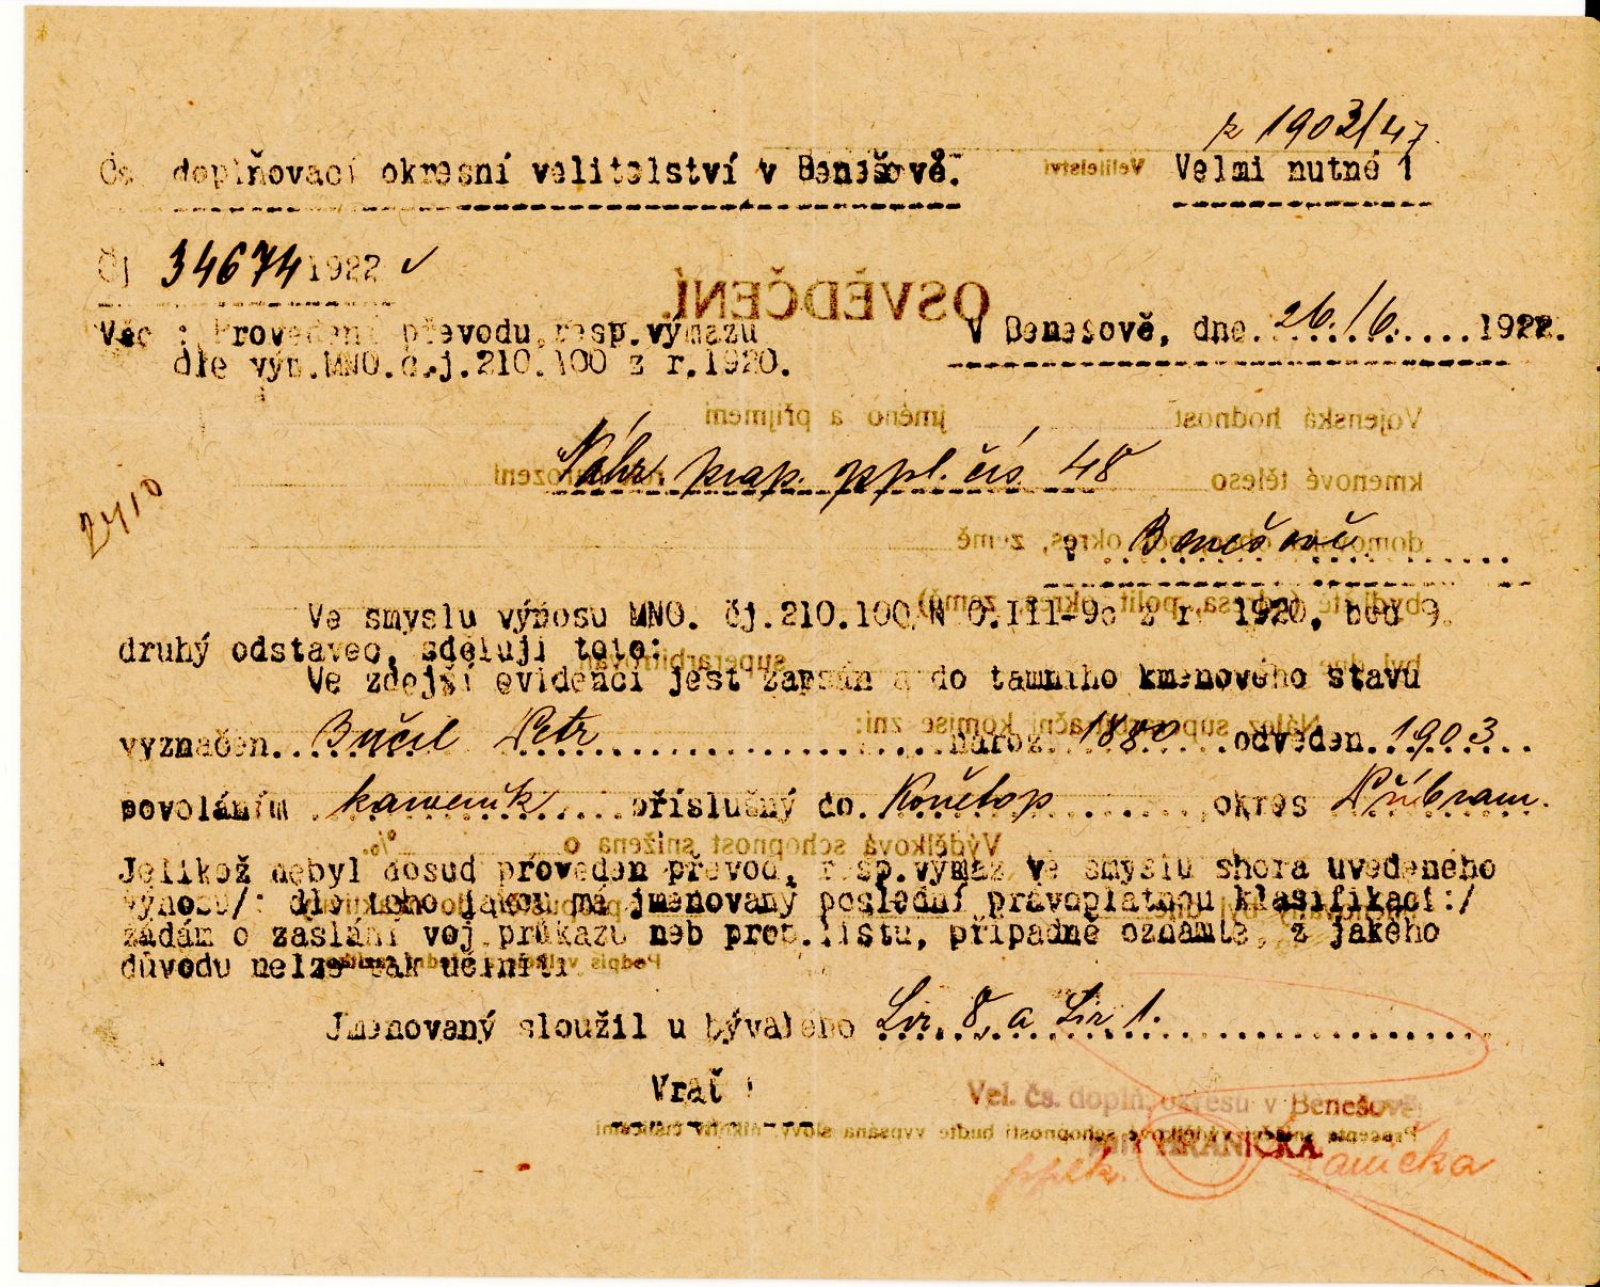 r 1903/47.
Čs. doplňovací okresní velitelství v Benešově.
Velmi nutné !
Čj 34674 1922 ✓
Věc : Provedení převodu, resp. výmazu
dle výn.MNO.č.j.210.100 z r.1920.
V Benešově, dne.26./6.....1922.
Náhr. prap. ppl. čís. 48
v Benešově
2410
Ve smyslu výnosu MNO. čj.210.100 N O.III-90 z r. 1920, bod 9.
druhý odstavec, sděluji toto:
Ve zdejší evidenci jest zapsán a do tamního kmenového stavu
vyznačen..Bučil Petr..........naroz. 1880...odveden.1903...
povoláním .kameník.....příslušný do. Konětop.......,okres Příbram.
Jelikož nebyl dosud proveden převod, resp.výmaz ve smyslu shora uvedeného
výnosu/: dle toho jakou má jmenovaný poslední pravoplatnou klasifikaci:/
žádám o zaslání voj.průkazu neb prop.listu, případně oznamte, z jakého
důvodu nelze tak učiniti.
Jmenovaný sloužil u bývalého Lir. 8, a Lir 1.
Vrať !
Vel. čs. doplň. okresu v Benešově
HRANIČKA
pplk.
OSVĚDČENÍ
Velitelství
Vojenská hodnost jméno a příjmení
kmenové těleso
okres, země
Výdělková schopnost snížena o %.